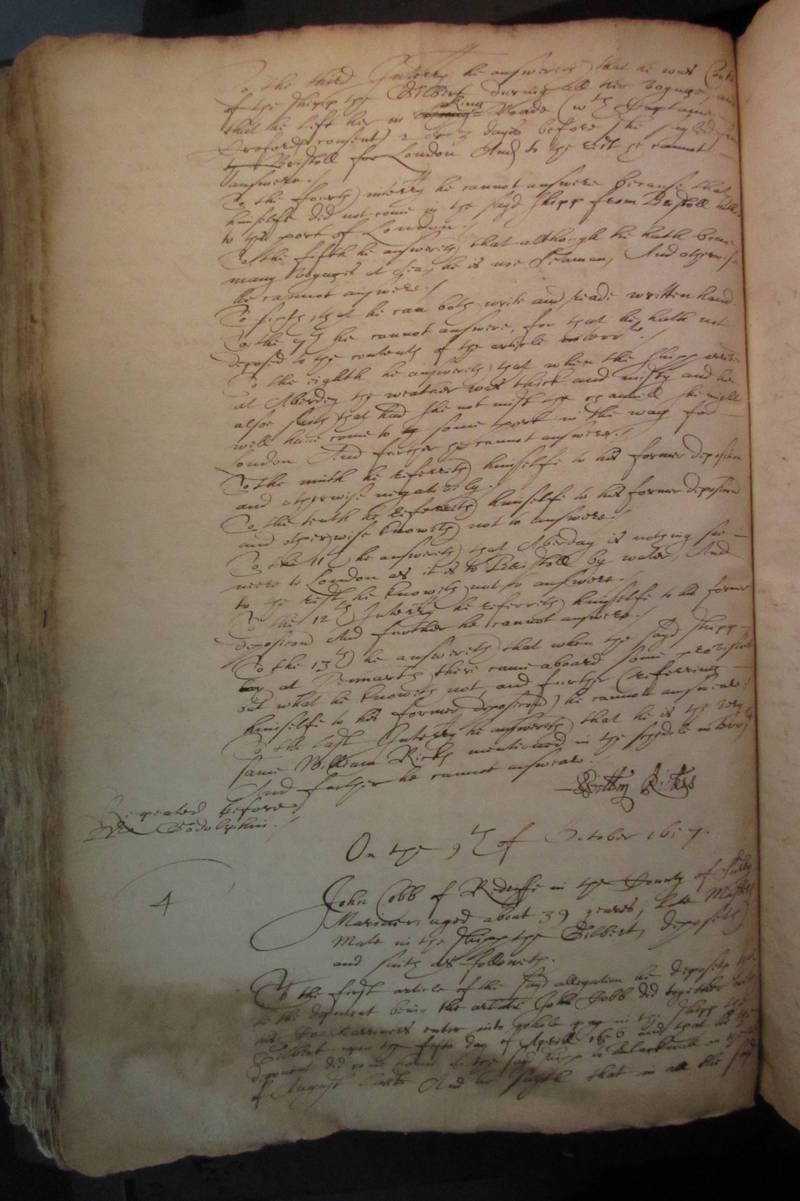 To the third Interry he answereth that he was
of the shipp the Gilbert during all her voyage, and
that he left her in Roade wth Captaine
consent 2 or 3 dayes before the
Bristoll for London And to the rest he cannot
answere./
To the fourth interry he cannot answere because that
himselfe did not come in the sayd shipp from Bristoll
to the port of London./
To the fifth he answereth that although he hath bene
many voyages at sea, he is noe Seaman, And otherwise
he cannot answere./
To sixth, that he can both write and reade written hand
To the 7th he cannot answere, for that he hath not
deposed to the contents of the article
To the eighth he answereth, that when the shipp
at Aberdey the weather was thick and misty and he
alsoe saith that had she not mist the she might
well have come to some port in the way for
London And further he cannot answere./
To the ninth he referreth himselfe to his former deposicon
and otherwise negatively./
To the tenth he referreth himselfe to his former deposicon
and otherwise knoweth not to answere./
To the 11th he answereth that Aberday is nothing soe
neere to London as it is to Bristoll by water, And
to the rest he knoweth not to answere.
To the 12th Interry he referreth himselfe to his former
deposicon And further he cannot answere./
To the 13th he answereth that when the sayd shipp
lay at Penmarth there came aboard some provision
but what he knoweth not, and further (referring
himselfe to his former deposicon) he cannot answere./
To the last Interry he answereth that he is the very
same William Ricks mentioned in the schedule
And further he cannot answere./
Repeated before
Dr Godolphin./
Willm Rickes
On the 9th of October 1657.
4
John Cobb of Redriffe in the County of Surrey
Mariner, aged about 39 yeares, late Masters
Mate in the shipp the Gilbert, deposeth
and saith as followeth.
To the first article of the sayd allegation he deposeth that
he the deponent being the John Cobb did together
enter into pay in the shipp the
Gilbert upon the fifth day of Aprill 1656 and that he the
deponent did the sayd shipp
of August last And he sayth that in all the sayd